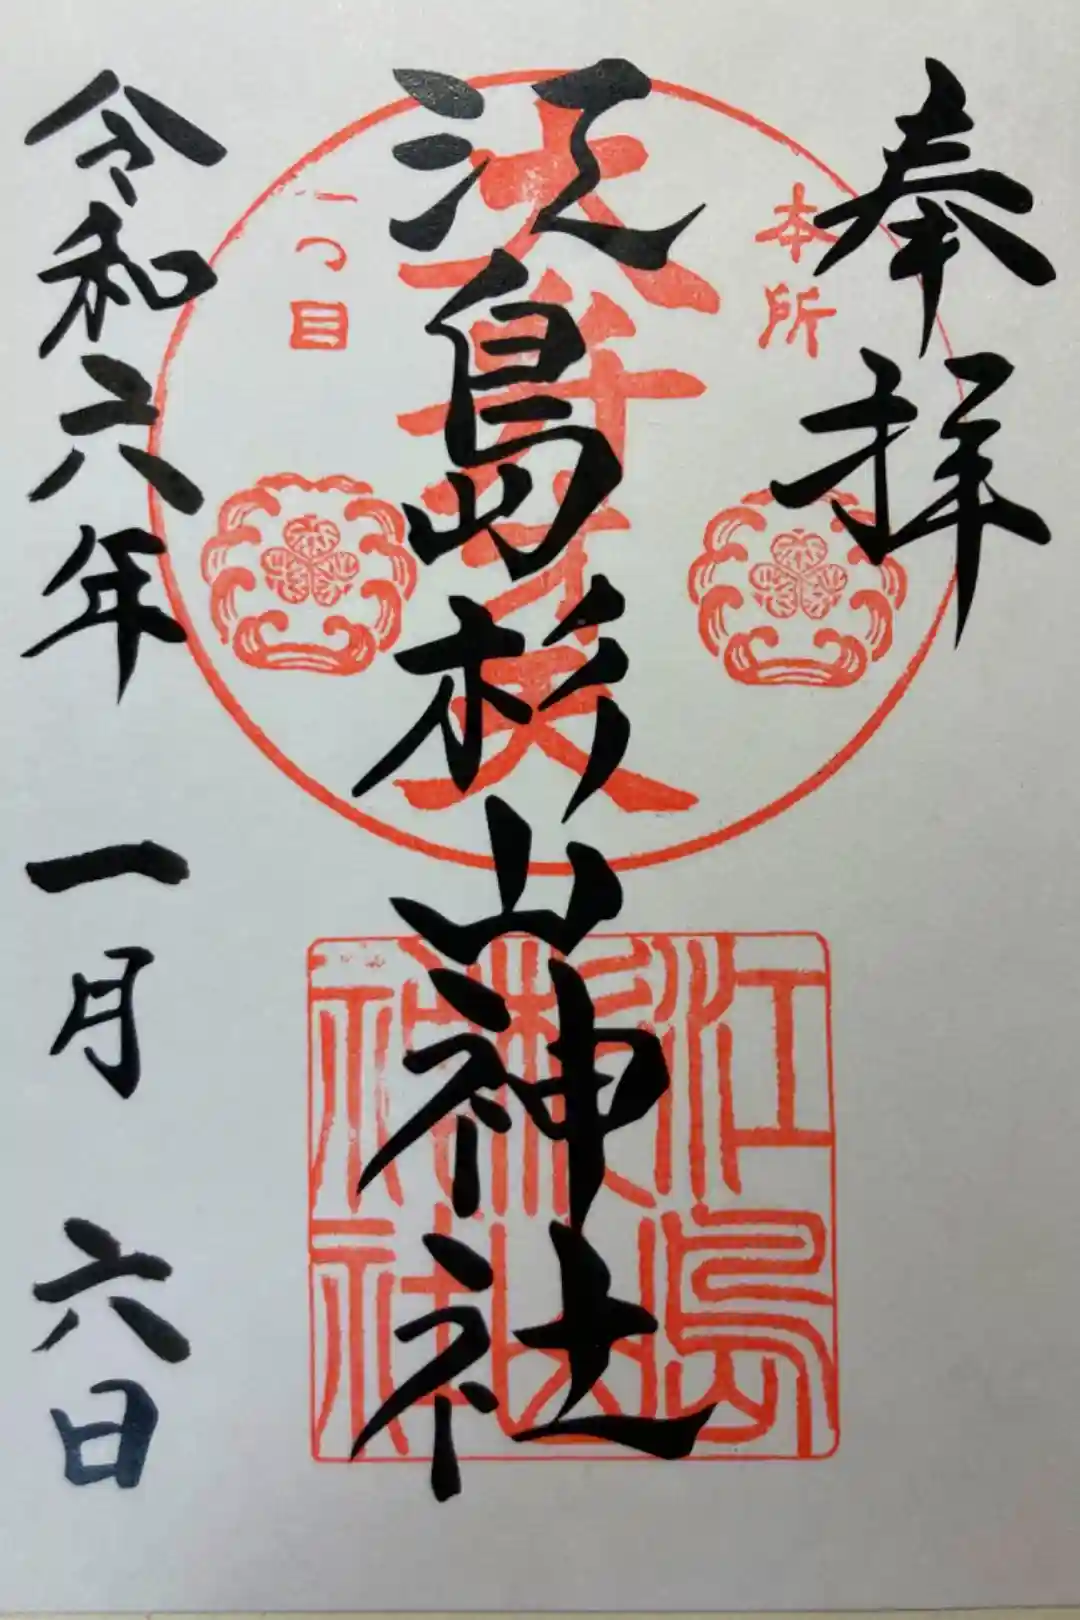 奉拝
本所
江島杉山神社
大弁才天
一つ目
江島
杉山
神社
令和六年 一月 六日